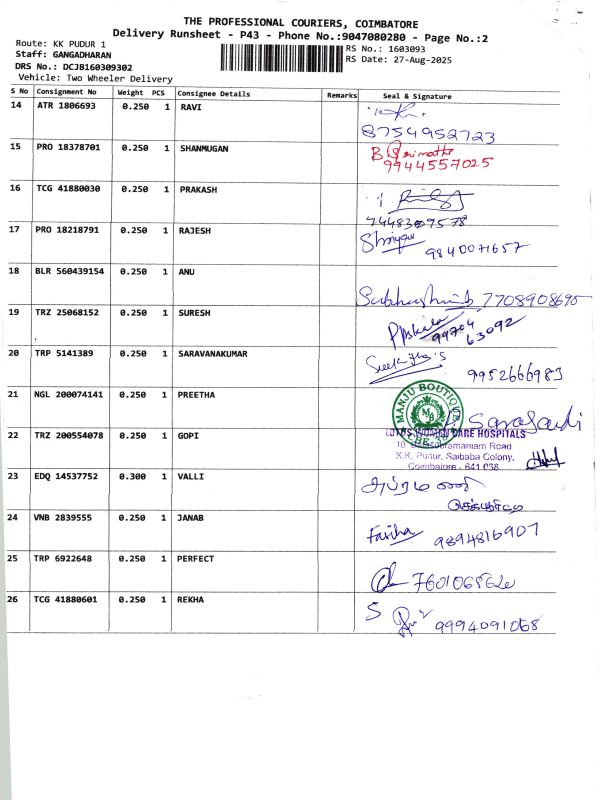 THE PROFESSIONAL COURIERS, COIMBATORE
Delivery Runsheet - P43 - Phone No.:9047080280 - Page No.:2
Route: KK PUDUR 1
Staff: GANGADHARAN
DRS No.: DCJB160309302
Vehicle: Two Wheeler Delivery
RS No.: 1603093
RS Date: 27-Aug-2025
S No Consignment No Weight PCS Consignee Details Remarks Seal & Signature
14 ATR 1806693 0.250 1 RAVI
8754952723
15 PRO 18378701 0.250 1 SHANMUGAN
9944557025
16 TCG 41880030 0.250 1 PRAKASH
17 PRO 18218791 0.250 1 RAJESH
9840071657
18 BLR 560439154 0.250 1 ANU
7708908695
19 TRZ 25068152 0.250 1 SURESH
99704
63092
20 TRP 5141389 0.250 1 SARAVANAKUMAR
9952666983
21 NGL 200074141 0.250 1 PREETHA
MANJU BOUTIQUE
MB
22 TRZ 200554078 0.250 1 GOPI
CARE HOSPITALS
Road
K.K. Pudur, Saibaba Colony,
Coimbatore - 641 038
23 EDQ 14537752 0.300 1 VALLI
24 VNB 2839555 0.250 1 JANAB
Fariha 9894816907
25 TRP 6922648 0.250 1 PERFECT
26 TCG 41880601 0.250 1 REKHA
9994091068